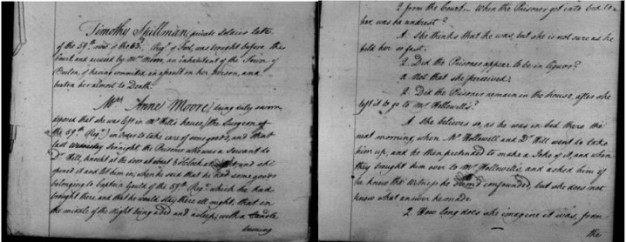 Timothy Spillman, private Soldier late
of the 59th now of the 82d Regt of Foot, was brought before this
Court and accused by Mrs Moore, an inhabitant of the Town of
Boston, of having committed a rape on her Person, and
beaten her almost to Death.
Mrs Annes Moore, being duly sworn
deposed that she was left in Mr Hill's house, (the Surgeon of
the 59th Regt) in order to take care of
last Wednesday se'nnight, the Prisoner who was a Servant to
Dr Hill, knocked at the door at about 8 o'clock and she
opened it and let him in, when he said that he had some goods
belonging to Captain Gould of the 59th Regt which he had
brought there, and that he would stay there all night; that on
the middle of the night being abed and asleep with a Candle
burning
2 from the Court. When the Prisoner got into bed to
her, was he undrest?
A. She thinks that he was, but she is not sure as he
held her so fast.
2. Did the Prisoner appear to be in liquor?
A. Not that she perceived.
2. Did the Prisoner remain in the house, after she
left it to go to Mr Hallowell's?
A. She believes so, as he was in bed there the
next morning, when Mr Hallowell and Dr Hill went to take
him up, and he then pretended to make a Joke of it, and when
they brought him over to Mr Hallowell's, and asked him if
he knew that he seemed confounded, but she does not
know what answer he made
2. How long does she imagine it was from
the